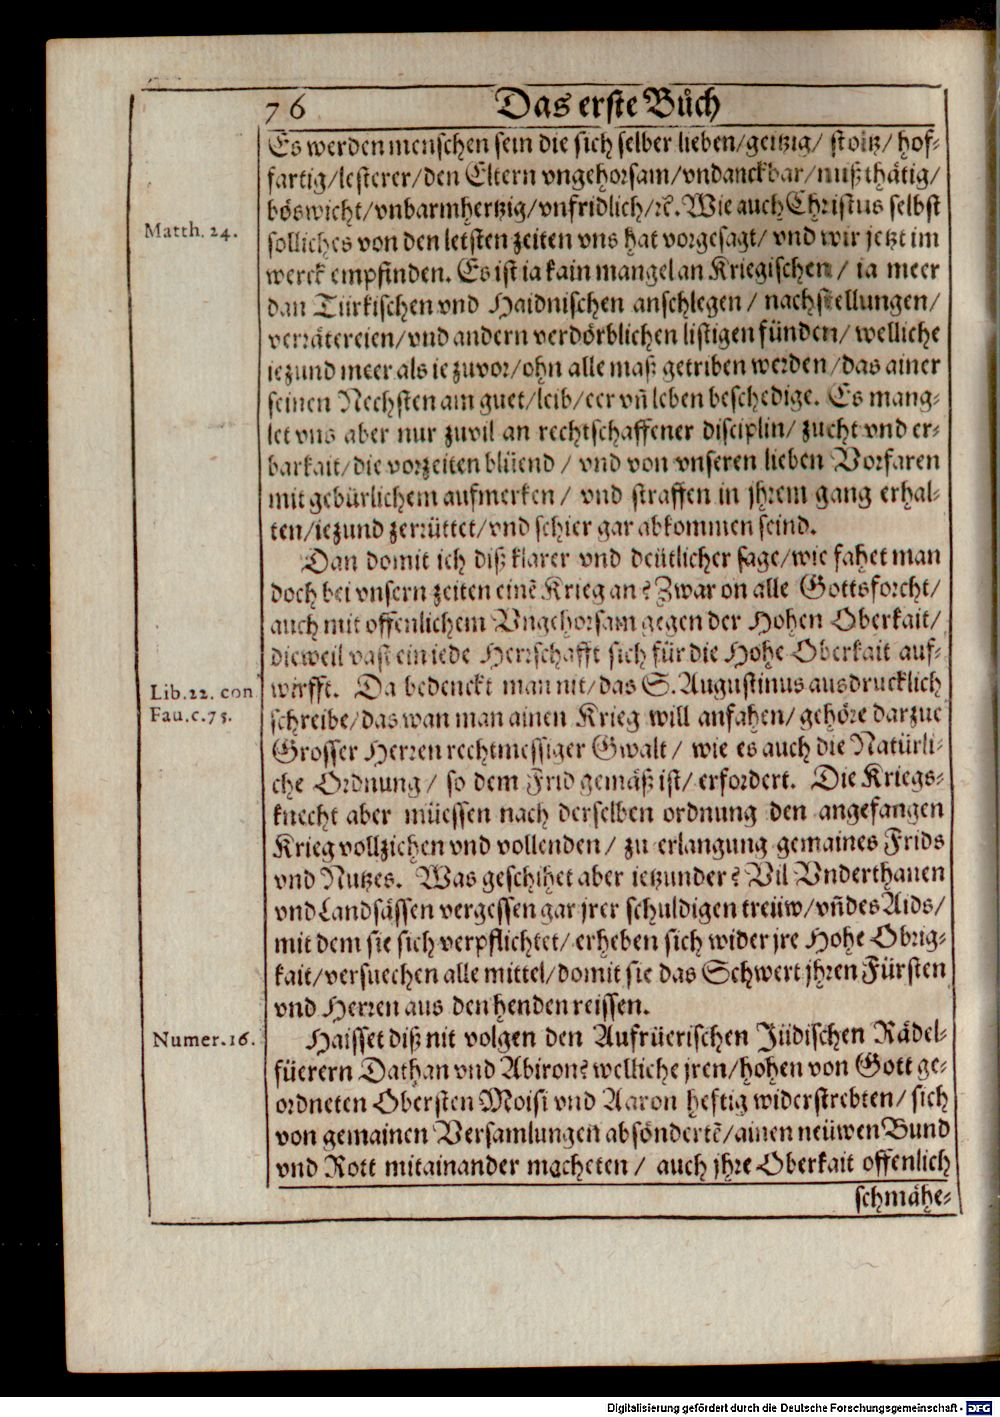 76 Das erste Bůch
Es werden menschen sein die sich selber lieben/geitzig/ stoltz/ hof-
fartig/lesterer/den Eltern vngehorsam/vndanckbar/mußthätig/
böswicht/vnbarmhertzig/vnfridlich/ꝛc. Wie auch Christus selbst
Matth. 24.
solliches von den letsten zeiten vns hat vorgesagt/ vnd wir jetzt im
werck empfinden. Es ist ia kain mangel an Kriegischen/ ia meer
dan Türkischen vnd Haidnischen anschlegen/ nachstellungen/
verrätereien/vnd andern verdörblichen listigen fünden/ welliche
iezund meer als ie zuvor/ohn alle maß getriben werden/das ainer
seinen Nechsten am guet/leib/eer vñ leben beschedige. Es mang-
let vns aber nur zuvil an rechtschaffener disciplin/ zucht vnd er-
barkait/die vorzeiten blüend/ vnd von vnseren lieben Vorfaren
mit gebürlichem aufmerken/ vnd straffen in jhrem gang erhal-
ten/iezund zerrüttet/vnd schier gar abkommen seind.
Dan domit ich diß klarer vnd deütlicher sage/wie fahet man
doch bei vnsern zeiten einē Krieg an? Zwar on alle Gottsforcht/
auch mit offenlichem Vngehorsam gegen der Hohen Oberkait/
dieweil vast ein iede Herrschafft sich für die Hohe Oberkait auf-
Lib. 22. con
wirfft. Da bedenckt man nit/das S. Augustinus ausdrucklich
Fau. c. 75.
schreibe/das wan man ainen Krieg will anfahen/ gehöre darzue
Grosser Herren rechtmessiger Gwalt/ wie es auch die Natürli-
che Ordnung/ so dem Frid gemäß ist/ erfordert. Die Kriegs-
knecht aber müessen nach derselben ordnung den angefangen
Krieg vollziehen vnd vollenden/ zu erlangung gemaines Frids
vnd Nutzes. Was geschihet aber ietzunder? Vil Vnderthanen
vnd Landsässen vergessen gar jrer schuldigen treüw/vñ des Aids/
mit dem sie sich verpflichtet/ erheben sich wider jre Hohe Obrig-
kait/versuechen alle mittel/domit sie das Schwert jhren Fürsten
vnd Herren aus den henden reissen.
Numer. 16.
Haisset diß nit volgen den Aufrüerischen Jüdischen Rädel-
füerern Dathan vnd Abiron? welliche jren/hohen von Gott ge-
ordneten Obersten Moisi vnd Aaron heftig widerstrebten/ sich
von gemainen Versamlungen absöndertē/ainen neüwen Bund
vnd Rott mitainander macheten/ auch jhre Oberkait offenlich
schmähe-
Digitalisierung gefördert durch die Deutsche Forschungsgemeinschaft - DFG